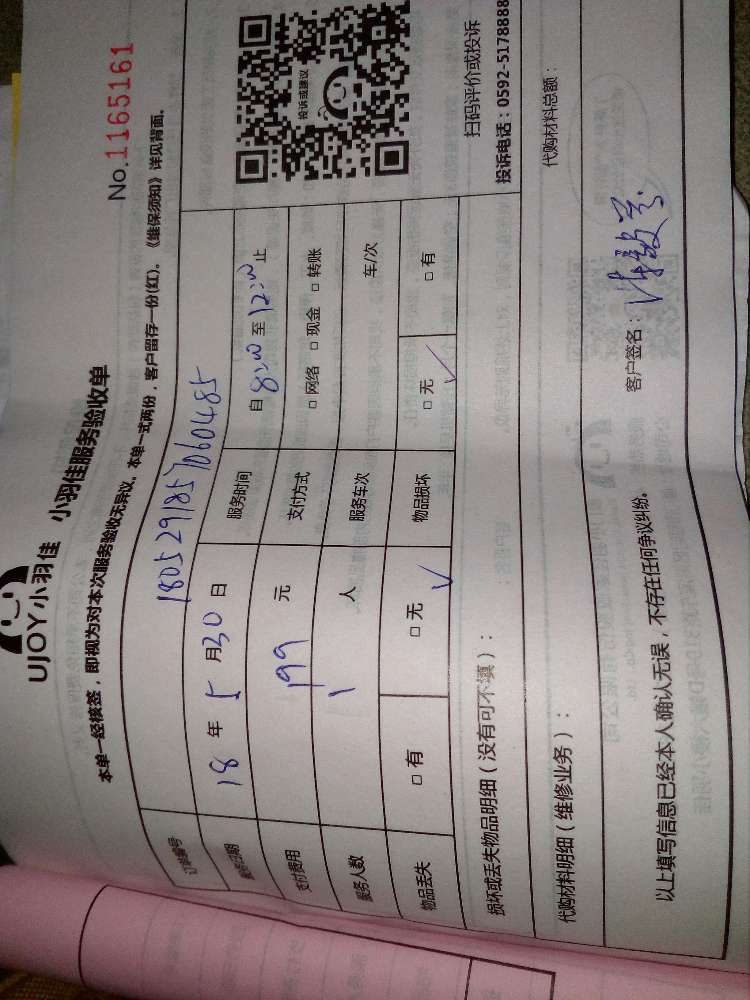 UJOY小羽佳 小羽佳服务验收单
No.1165161
本单一经核签，即视为对本次服务验收无异议。本单一式两份，客户留存一份(红)。《维保须知》详见背面。
订单编号 1805291857060485
服务日期 18年5月30日 服务时间 自8:00至12:00止
支付费用 199元 支付方式 □网络 □现金 □转账
服务人数 1人 服务车次 车/次
物品丢失 □有 □无 √ 物品损坏 □无 √ □有
投诉或建议
扫码评价或投诉
投诉电话：0592-5178888
损坏或丢失物品明细（没有可不填）：
代购材料明细（维修业务）： 代购材料总额：
以上填写信息已经本人确认无误，不存在任何争议纠纷。 客户签名：